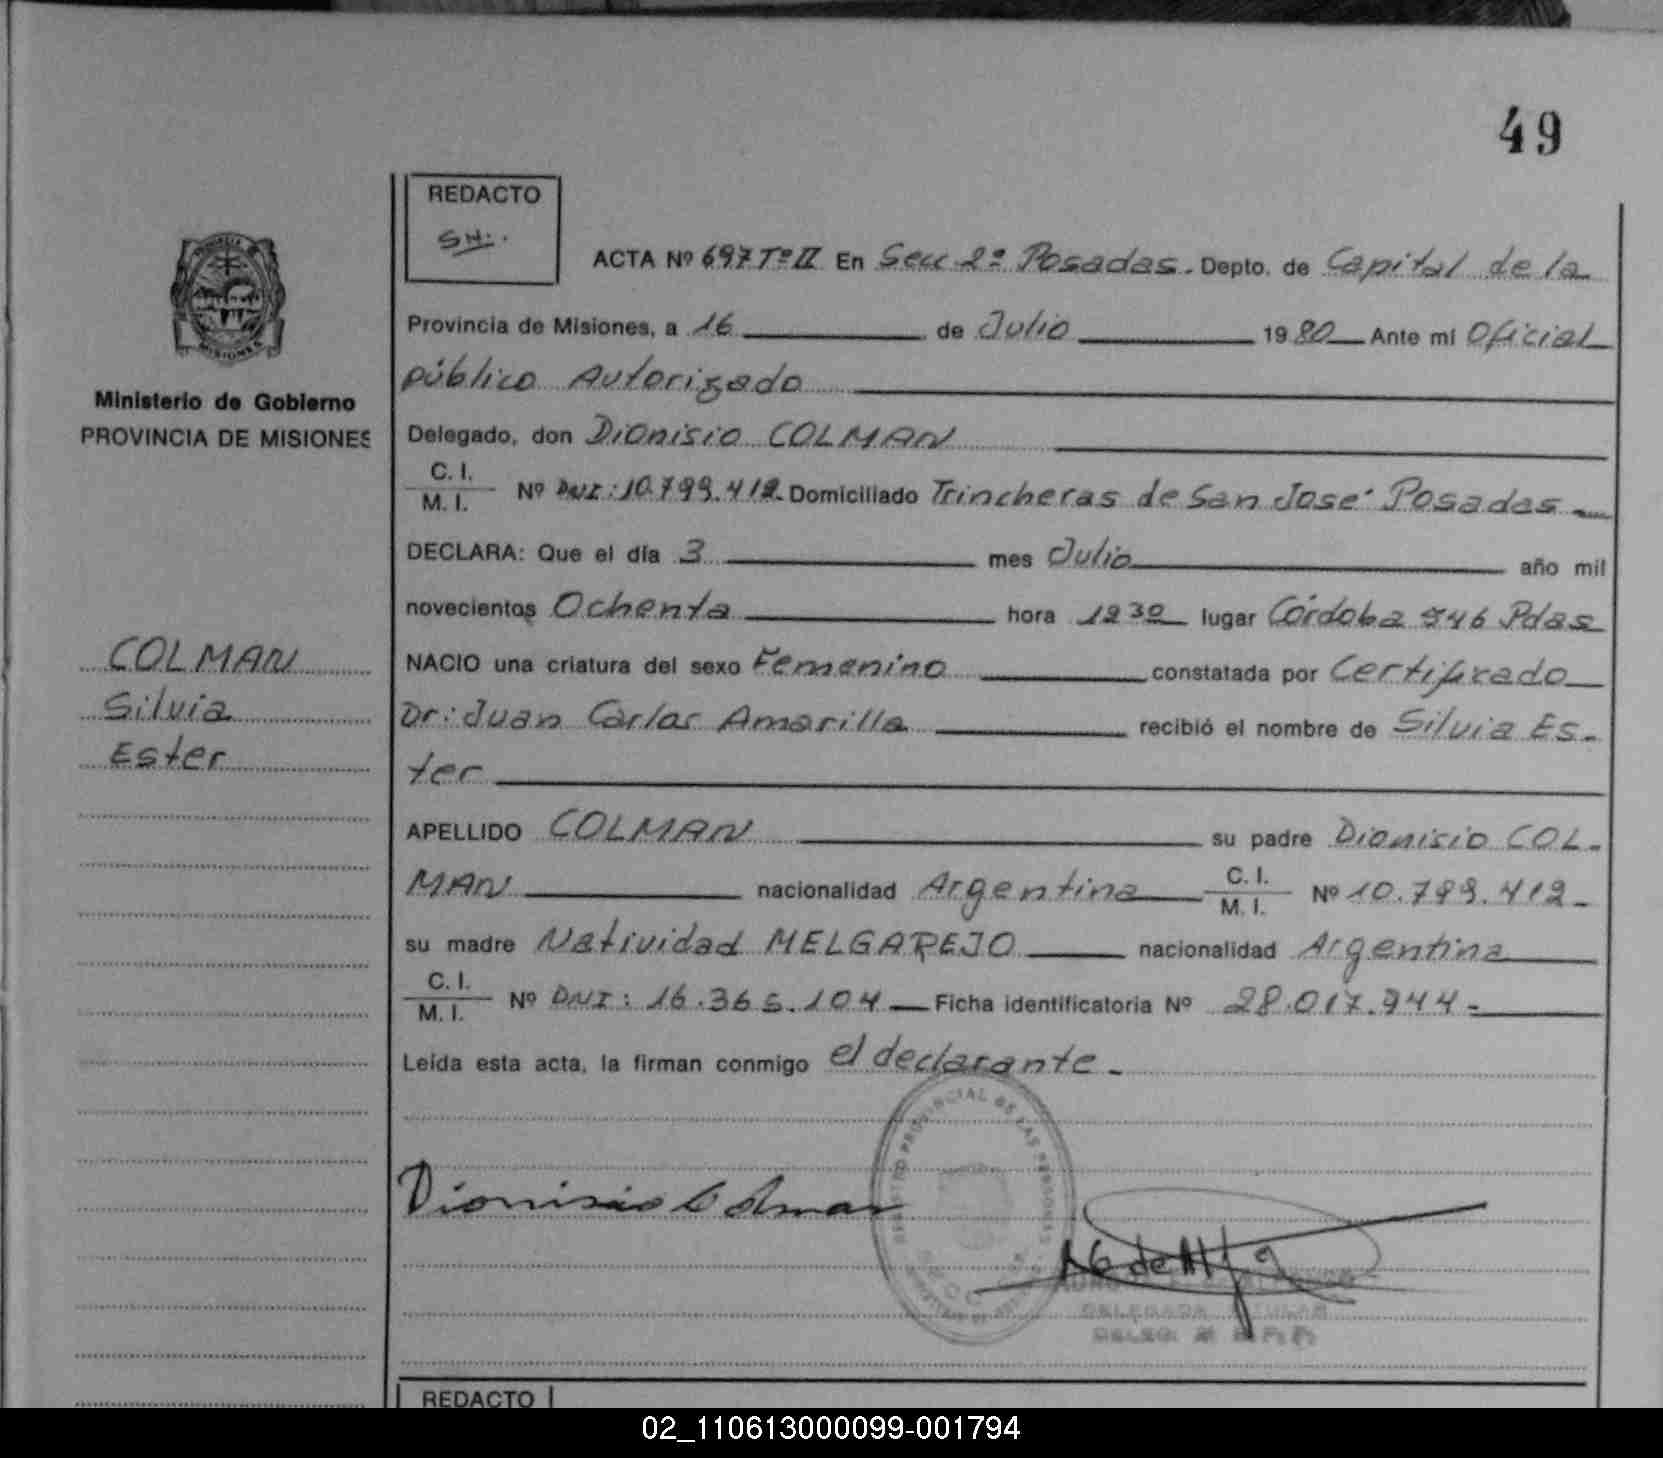 49
REDACTO
SH.
ACTA Nº 697 Tº II En Secc 2º Posadas. Depto. de Capital de la
Provincia de Misiones, a 16 de Julio 1980 Ante mi Oficial
público Autorizado
Ministerio de Gobierno
PROVINCIA DE MISIONES
Delegado, don Dionisio COLMAN
C. I.
M. I. Nº DNI: 10.799.412. Domiciliado Trincheras de San Jose Posadas
DECLARA: Que el día 3 mes Julio año mil
novecientos Ochenta hora 1230 lugar Córdoba 946 Pdas
COLMAN
Silvia
Ester
NACIO una criatura del sexo Femenino constatada por Certificado
Dr: Juan Carlos Amarilla recibió el nombre de Silvia Es-
ter
APELLIDO COLMAN su padre Dionisio COL-
MAN nacionalidad Argentina C. I. M. I. Nº 10.799.412-
su madre Natividad MELGAREJO nacionalidad Argentina
C. I.
M. I. Nº DNI: 16.365.104 Ficha identificatoria Nº 28.017.944-
Leída esta acta, la firman conmigo el declarante.
REGISTRO PROVINCIAL DE LAS PERSONAS
Dionisio Colman
DELEGADA TITULAR
REDACTO
02_110613000099-001794